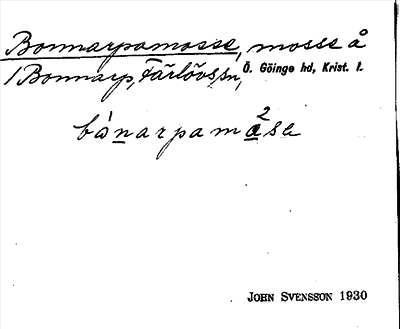 Bonnarpamosse, mosse å
/ Bonnarp, Färlövs sn, Ö. Göinge hd, Krist. l.
bánarpam²ase
JOHN SVENSSON 1930